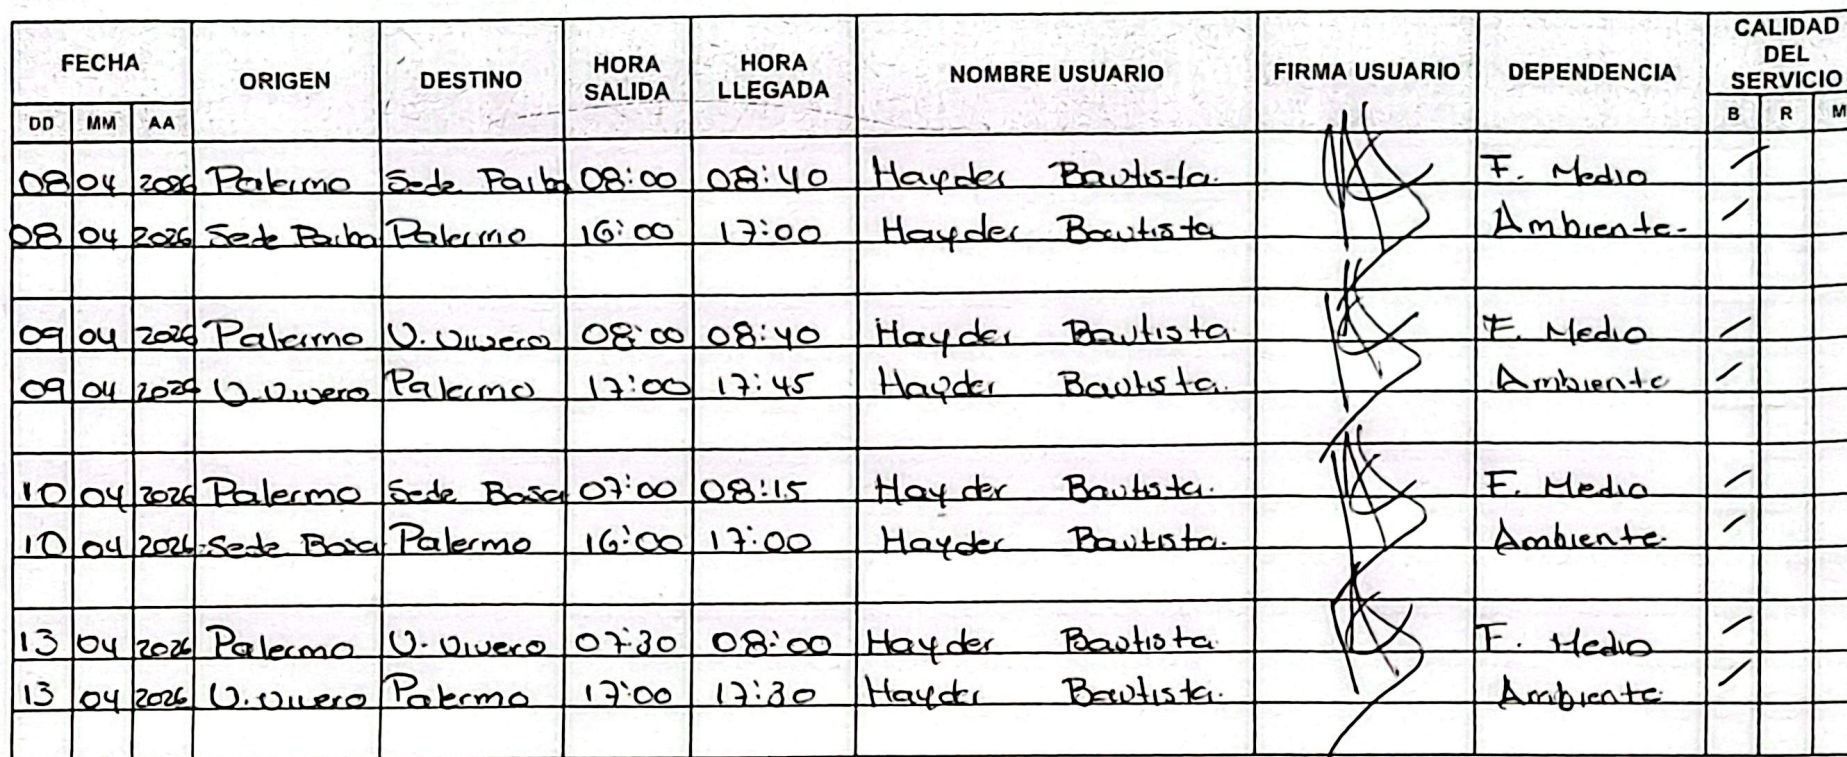 FECHA ORIGEN DESTINO HORA SALIDA HORA LLEGADA NOMBRE USUARIO FIRMA USUARIO DEPENDENCIA CALIDAD DEL SERVICIO
DD MM AA B R M
08 04 2026 Palermo Sede Paiba 08:00 08:40 Hayder Bautista. F. Medio
08 04 2026 Sede Paiba Palermo 16:00 17:00 Hayder Bautista Ambiente.
09 04 2026 Palermo U. Vivero 08:00 08:40 Hayder Bautista F. Medio
09 04 2026 U. Vivero Palermo 17:00 17:45 Hayder Bautista. Ambiente
10 04 2026 Palermo Sede Bosa 07:00 08:15 Hayder Bautista. F. Medio
10 04 2026 Sede Bosa Palermo 16:00 17:00 Hayder Bautista. Ambiente.
13 04 2026 Palermo U. Vivero 07:30 08:00 Hayder Bautista. F. Medio
13 04 2026 U. Vivero Palermo 17:00 17:30 Hayder Bautista. Ambiente